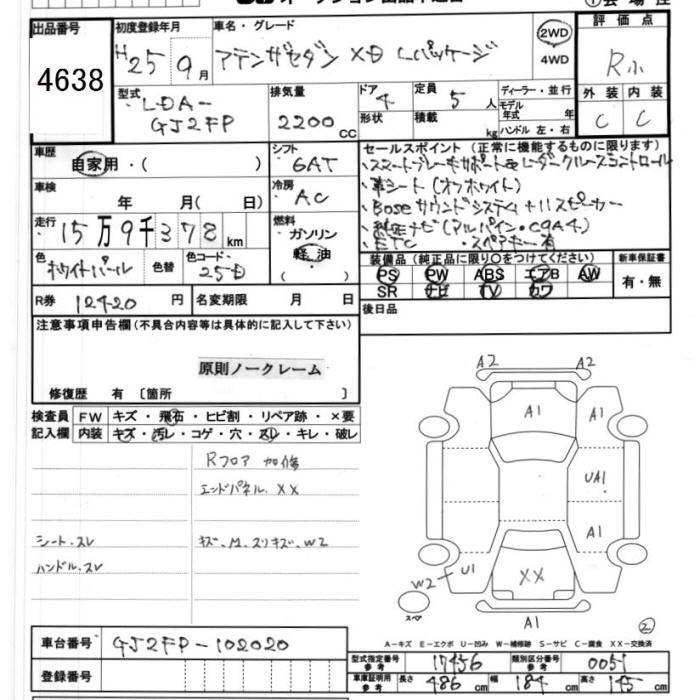 オークション出品申込書
出品番号
4638
初度登録年月
H25 9月
車名・グレード
アテンザセダン XD Lパッケージ
2WD
4WD
評価点
R小
外装 内装
C C
型式
LDA-
GJ2FP
排気量
2200cc
ドア
4
形状
定員
5人
積載
kg
ディーラー・並行
モデル年式 年
ハンドル 左・右
車歴
自家用・( )
シフト
6AT
車検
年 月( 日)
冷房
AC
走行
15万9千378km
燃料
ガソリン
軽油
( )
色
ホワイトパール
色替
色コード
25D
R券 12420円
名変期限 月 日
セールスポイント(正常に機能するものに限ります)
・スマートブレーキサポート&レーダークルーズコントロール
・革シート(オフホワイト)
・Boseサウンドシステム+11スピーカー
・純正ナビ(アルパイン・C9A4)
・ETC ・スペアキー有
装備品(純正品に限り〇をつけてください)
PS PW ABS エアB AW
SR ナビ TV カワ
新車保証書
有・無
後日品
注意事項申告欄(不具合内容等は具体的に記入して下さい)
原則ノークレーム
修復歴 有〔箇所 〕
検査員記入欄
FW キズ・飛石・ヒビ割・リペア跡・×要
内装 キズ・汚レ・コゲ・穴・スレ・キレ・破レ
Rフロア 加修
エンドパネル. XX
シート.スレ
キズ、凹、スリキズ、W2
ハンドル.スレ
A2 A2
A1 A1
UA1
A1
U1 XX
W2
スペア
A1
2
A-キズ E-エクボ U-凹み W-補修跡 S-サビ C-腐食 XX-交換済
車台番号 GJ2FP-102020
登録番号
型式指定番号 参考 17456
類別区分番号 参考 0051
車庫証明用 参考 長さ 486cm 幅 184cm 高さ 145cm